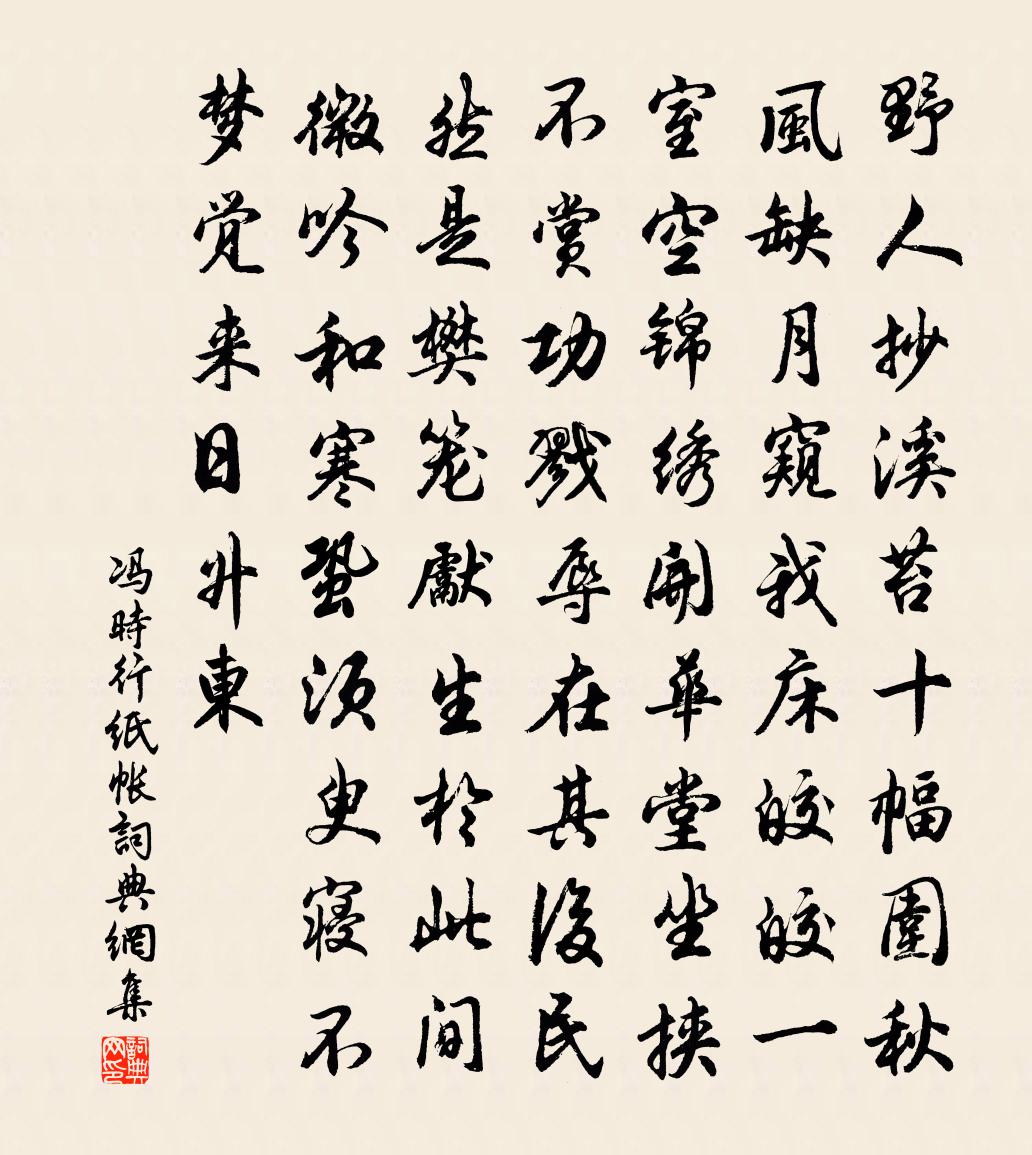 野人抄溪苔十幅圍秋
風缺月窺我床皎皎一
室空锦绣開華堂坐挾
不賞功戮辱在其後民
然是樊笼獻生於此間
微吟和寒蛩須臾寝不
梦觉来日升東
冯時行紙帐詞典網集
詞典网印